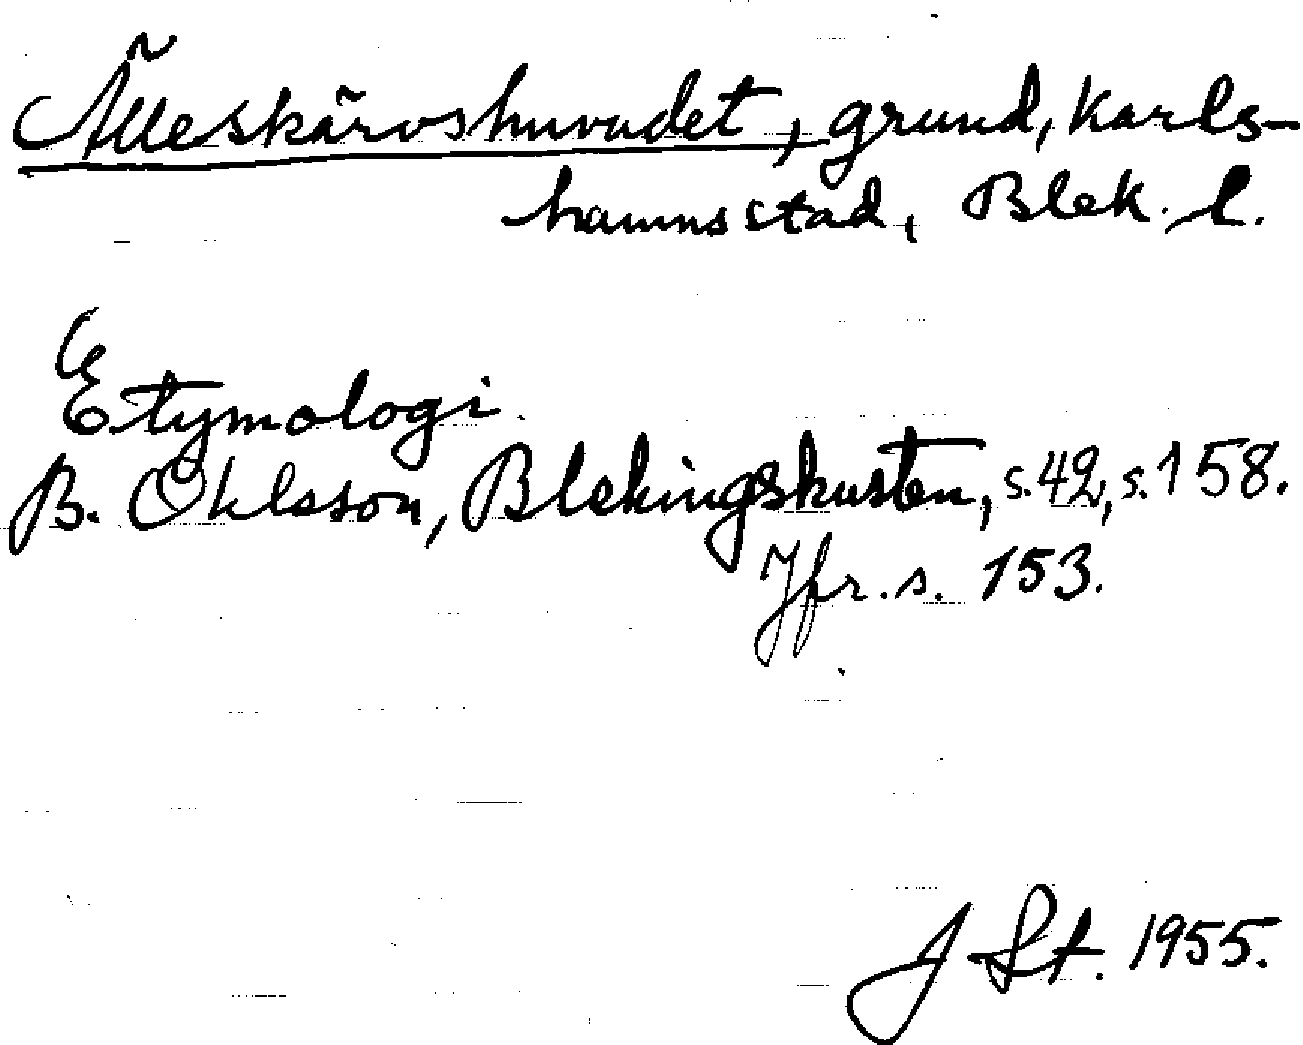 Älleskärvshuvudet, grund, Karls-
hamns stad, Blek. l.
Etymologi
B. Ohlsson, Blekingskusten, s. 42, s. 158.
Jfr. s. 153.
J St. 1955.